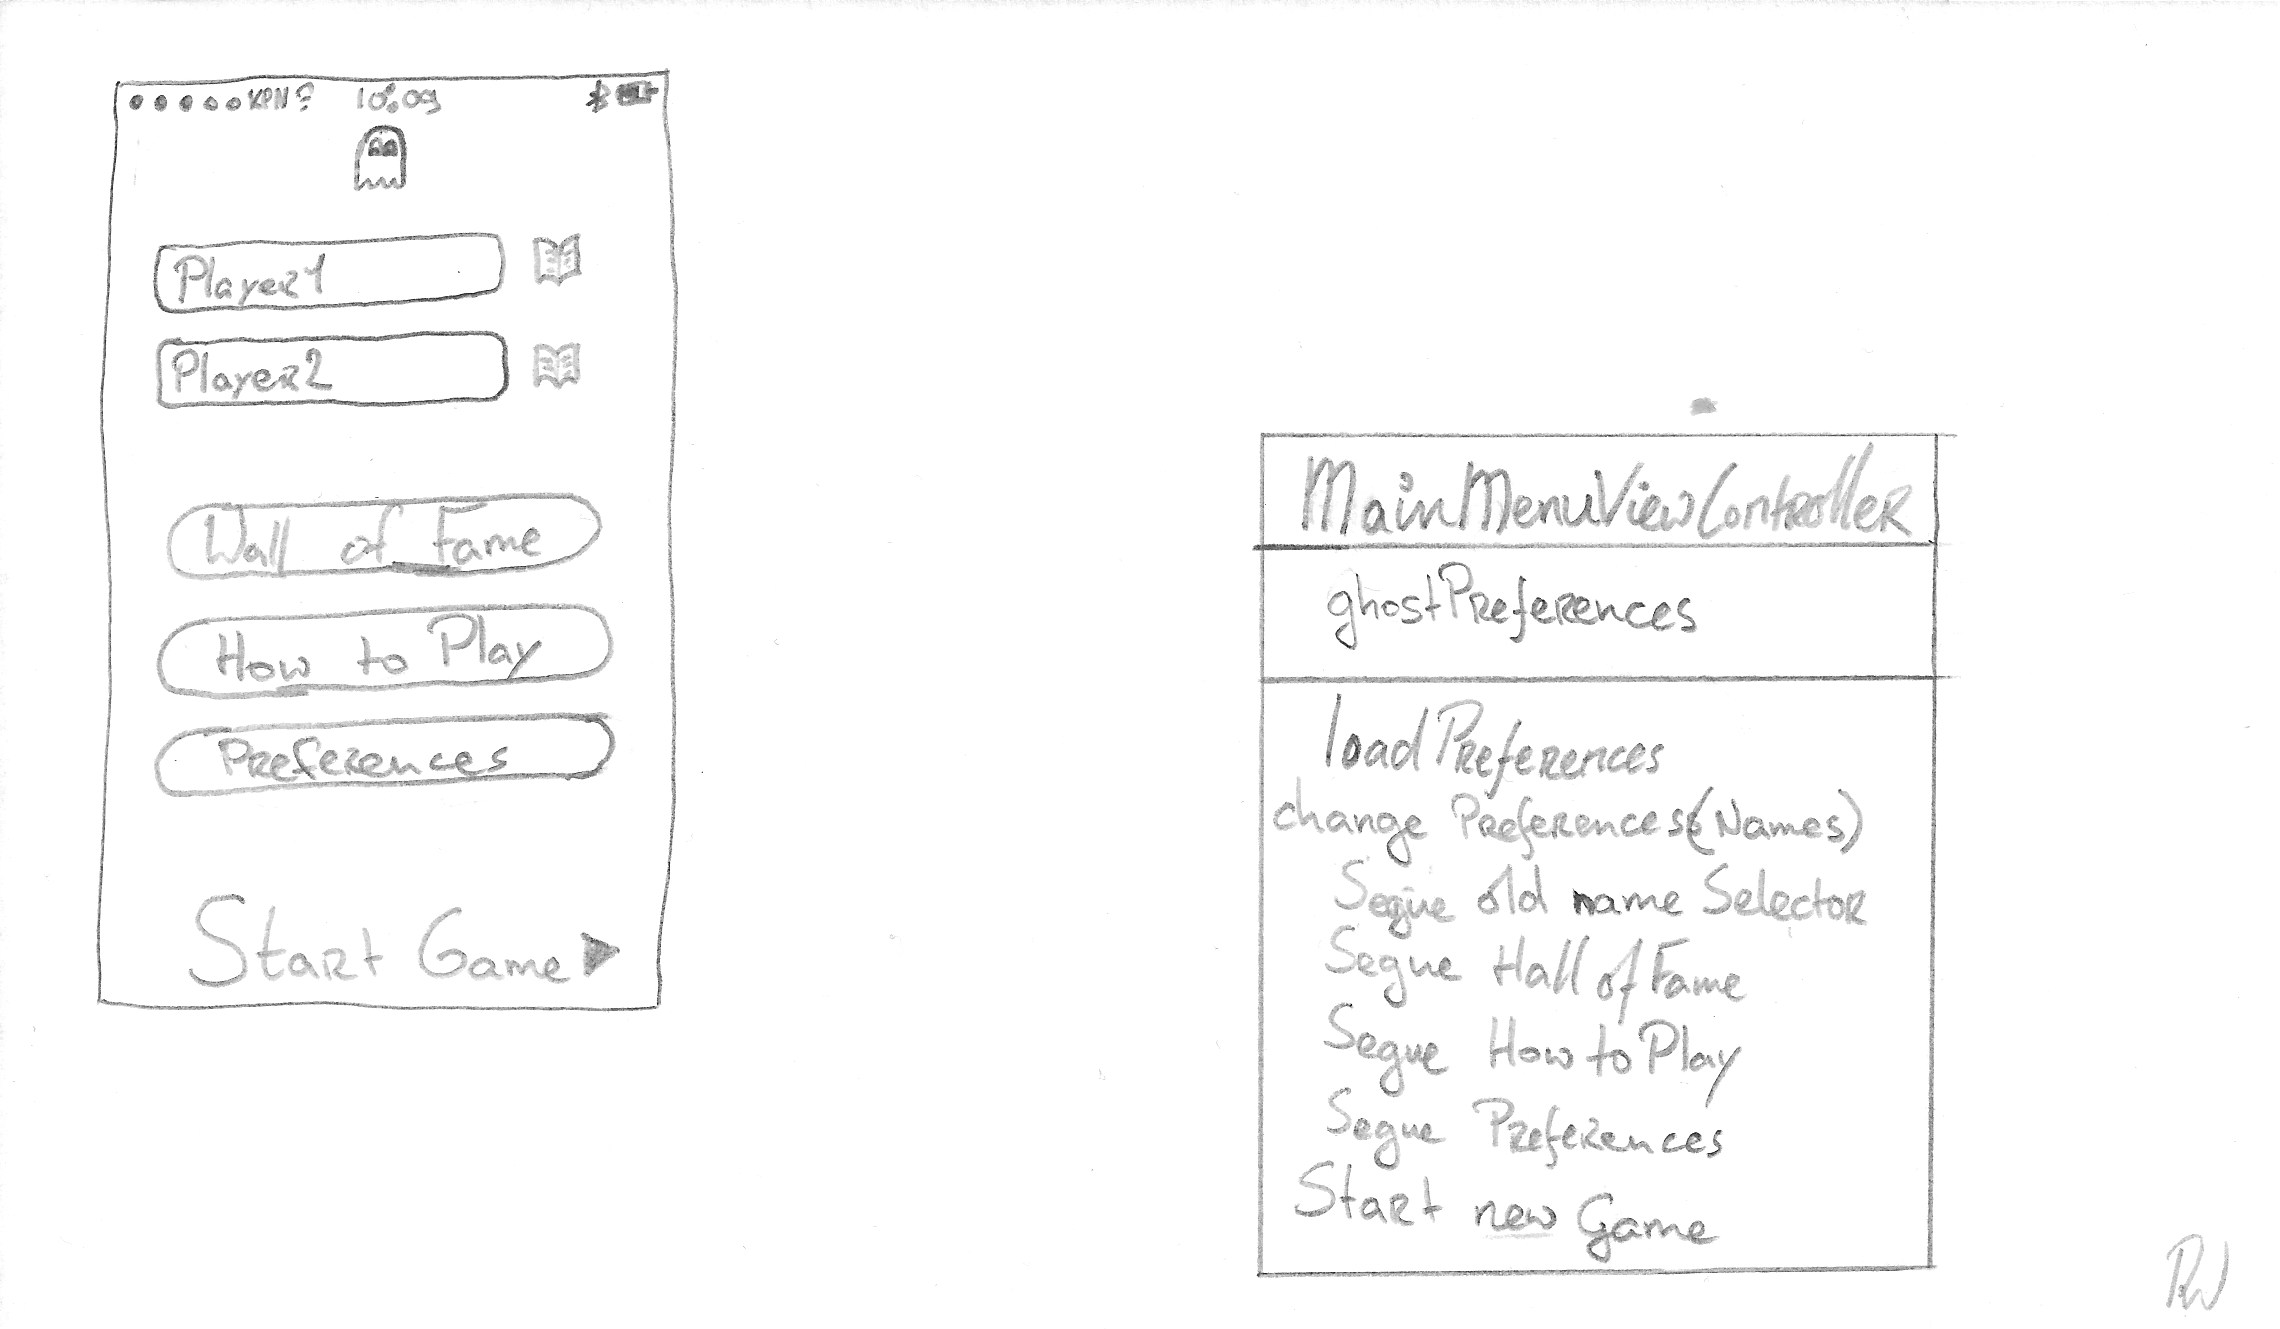 KPN 10:09
Player1
Player2
Wall of Fame
How to Play
Preferences
Start Game
MainMenuViewController
ghostPreferences
loadPreferences
change Preferences(Names)
Segue old name Selector
Segue Hall of Fame
Segue How to Play
Segue Preferences
Start new Game